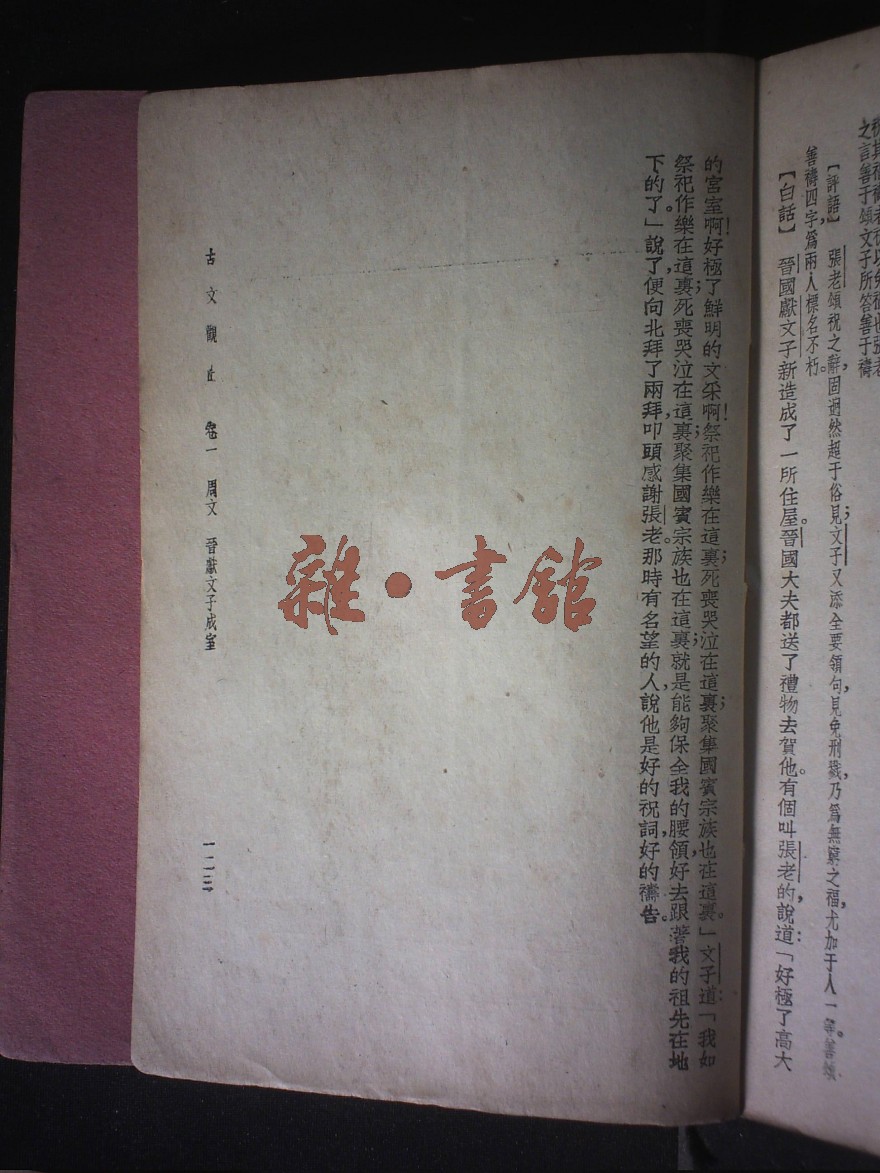 之言善于頌文子所答善于禱
【評語】 張老頌祝之辭，固迥然超于俗見；文子又添全要領句，見免刑戮，乃爲無窮之福，尤加于人一等。善頌
善禱四字，爲兩人標名不朽。
【白話】 晉國獻文子新造成了一所住屋。晉國大夫都送了禮物去賀他。有個叫張老的，說道：「好極了高大
的宮室啊！好極了鮮明的文采啊！祭祀作樂在這裏；死喪哭泣在這裏；聚集國賓宗族也在這裏。」文子道：「我如
祭祀作樂在這裏；死喪哭泣在這裏；聚集國賓宗族也在這裏；就是能夠保全我的腰領，好去跟著我的祖先在地
下的了。」說了，便向北拜了兩拜，叩頭感謝張老。那時有名望的人，說他是好的祝詞，好的禱告。
古文觀止 卷一 周文 晉獻文子成室 一二三
雜·書館